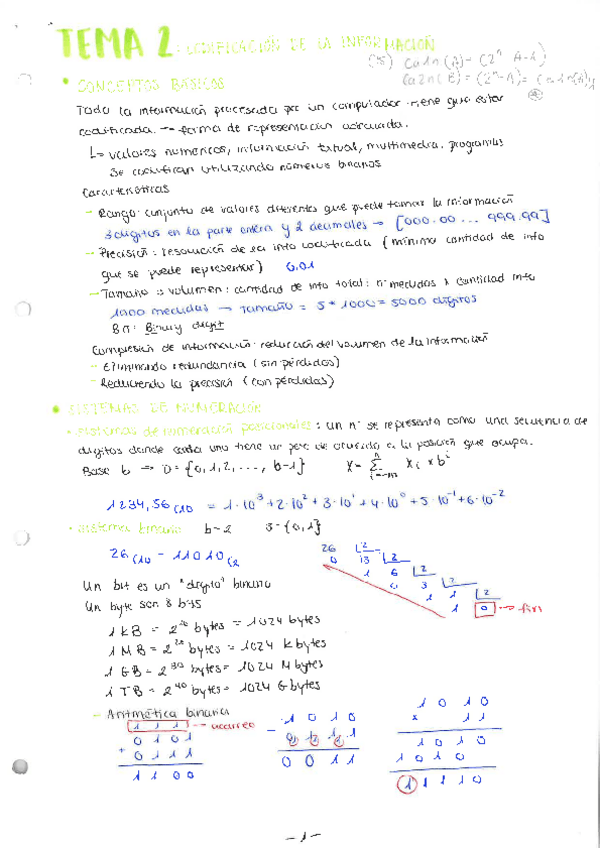 TEMA 2: CODIFICACIÓN DE LA INFORMACIÓN
(*) Ca1n(A) = (2ⁿ - A - 1)
Ca2n(B) = (2ⁿ - A) = Ca1n(A)+1
• CONCEPTOS BÁSICOS
Toda la información procesada por un computador tiene que estar
codificada → forma de representación adecuada.
↳ valores numéricos, información textual, multimedia, programas
Se codifican utilizando números binarios
Características
- Rango: conjunto de valores diferentes que puede tomar la información
3 dígitos en la parte entera y 2 decimales → [000.00 ... 999.99]
- Precisión: resolución de la info codificada (mínima cantidad de info
que se puede representar) 0,01
- Tamaño o volumen: cantidad de info total: nº medidas x cantidad info
1000 medidas → Tamaño = 5 * 1000 = 5000 dígitos
Bit: Binary digit
Compresión de información: reducción del volumen de la información
- Eliminando redundancia (sin pérdidas)
- Reduciendo la precisión (con pérdidas)
• SISTEMAS DE NUMERACIÓN
• Sistemas de numeración posicionales: un nº se representa como una secuencia de
dígitos donde cada uno tiene un peso de acuerdo a la posición que ocupa.
Base b → D = {0,1,2,..., b-1} X = Σ xᵢ x bⁱ
1234,56₍₁₀ = 1·10³ + 2·10² + 3·10¹ + 4·10⁰ + 5·10⁻¹ + 6·10⁻²
• Sistema binario b=2 {0,1}
26₍₁₀ = 11010₍₂
26 |2
0 13 |2
1 6 |2
0 3 |2
1 1 |2
1 0 → fin
Un bit es un "dígito" binario
Un byte son 8 bits
1 KB = 2¹⁰ bytes = 1024 bytes
1 MB = 2²⁰ bytes = 1024 Kbytes
1 GB = 2³⁰ bytes = 1024 Mbytes
1 TB = 2⁴⁰ bytes = 1024 Gbytes
- Aritmética binaria
1 1 1 → acarreo
0 1 0 1
+ 0 1 1 1
1 1 0 0
1 0 1 0
- 0 1 1 1
0 0 1 1
1 0 1 0
x 1 1
1 0 1 0
1 0 1 0
1 1 1 1 0
- 1 -